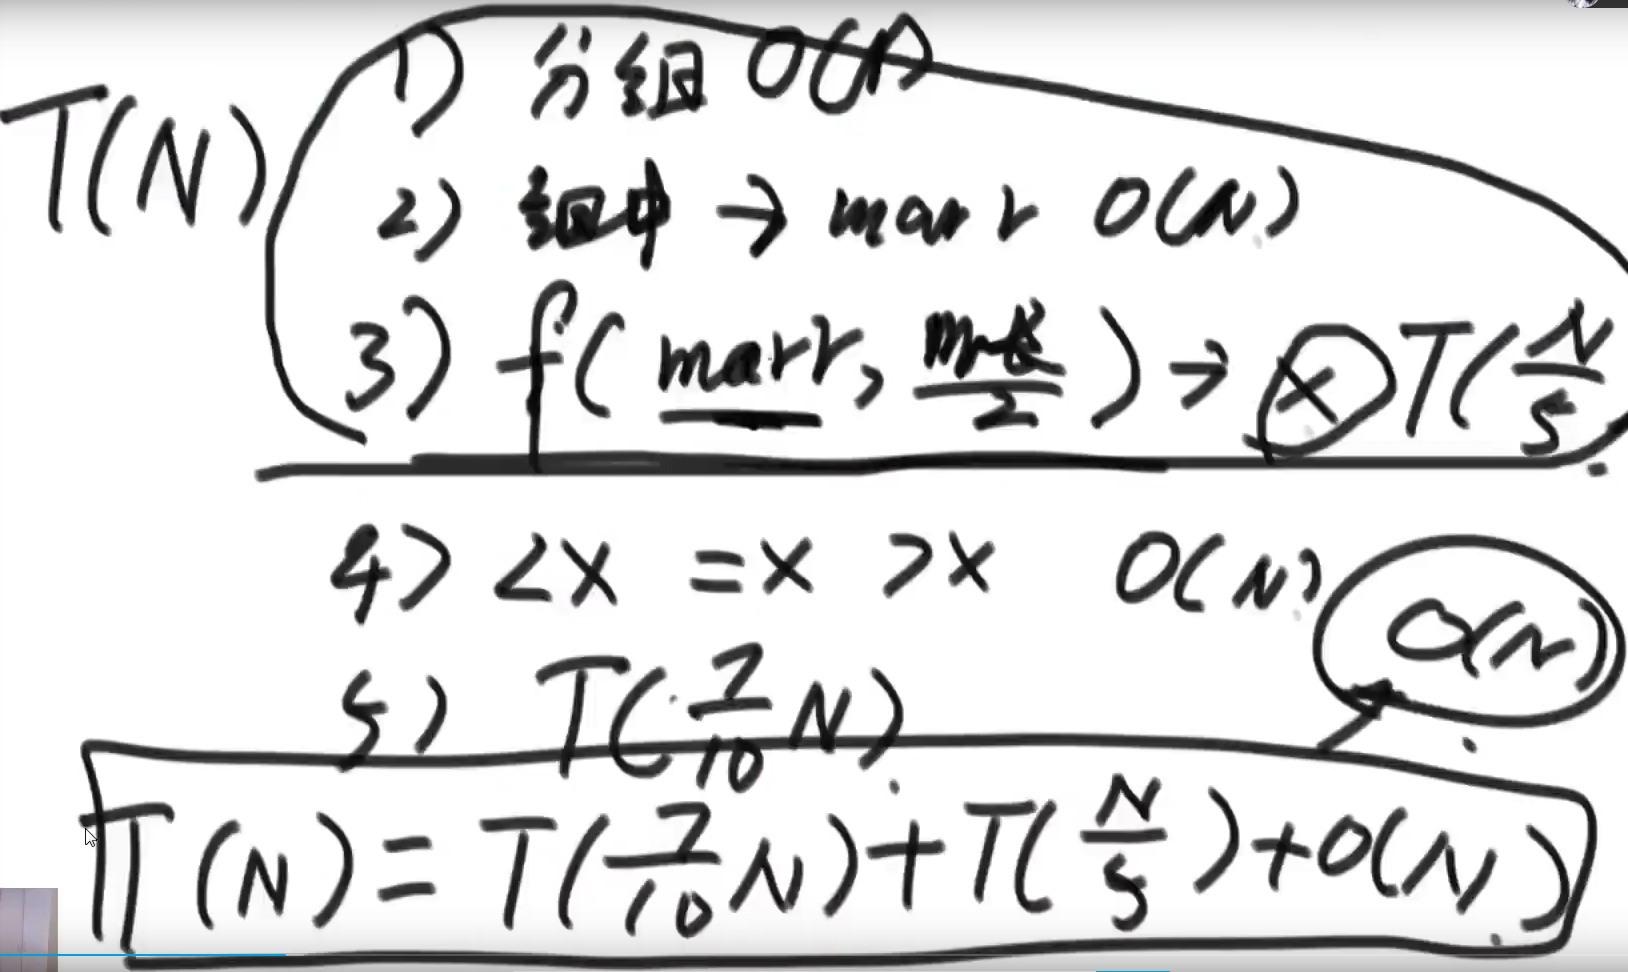 T(N)
1) 分组 O(N)
2) 组中 → marr O(N)
3) f( marr, m长/2 ) → x T(N/5
4) <x =x >x O(N)
O(N)
5) T(7/10 N)
T(N) = T(7/10 N) + T(N/5) + O(N)